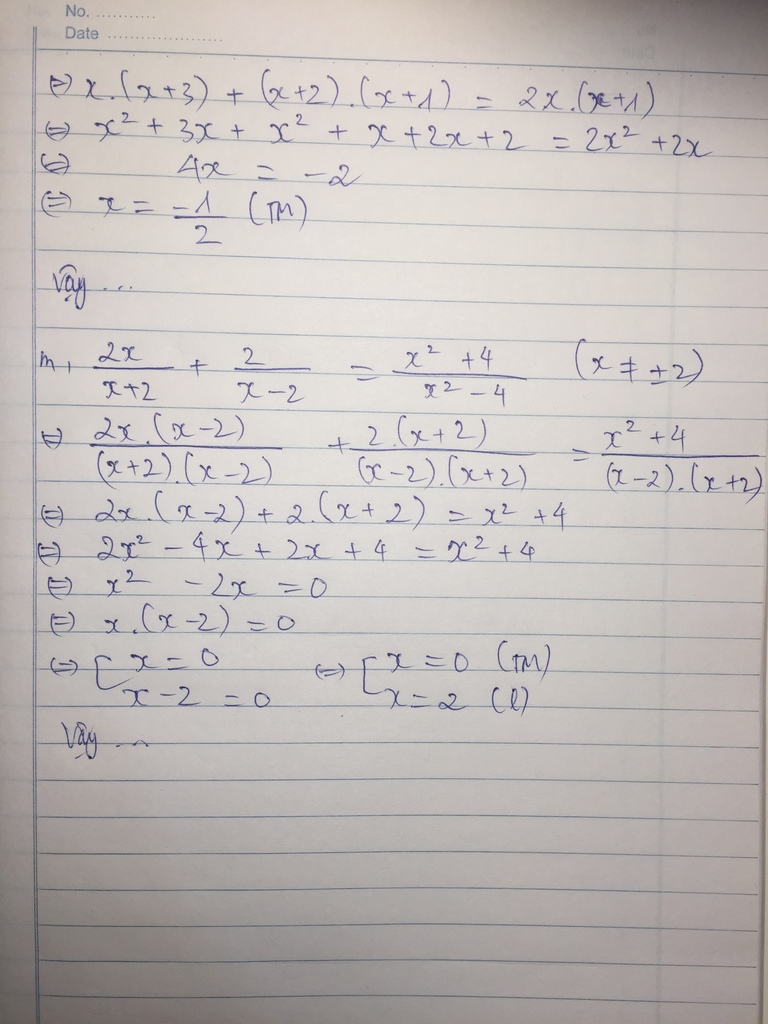 No. ...........
Date .....................
⇔ x.(x+3) + (x+2).(x+1) = 2x.(x+1)
⇔ x² + 3x + x² + x + 2x + 2 = 2x² + 2x
⇔ 4x = -2
⇔ x = -1/2 (TM)
Vậy ...
m, 2x/(x+2) + 2/(x-2) = (x² + 4)/(x² - 4) (x ≠ ±2)
⇔ 2x.(x-2)/(x+2).(x-2) + 2.(x+2)/(x-2).(x+2) = (x² + 4)/(x-2).(x+2)
⇔ 2x.(x-2) + 2.(x+2) = x² + 4
⇔ 2x² - 4x + 2x + 4 = x² + 4
⇔ x² - 2x = 0
⇔ x.(x-2) = 0
⇔ [ x = 0 ⇔ [ x = 0 (TM)
x - 2 = 0 x = 2 (l)
Vậy ...